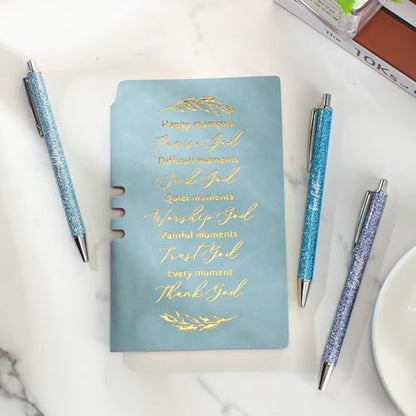 Happy moments
Praise God
Difficult moments
Seek God
Quiet moments
Worship God
Painful moments
Trust God
Every moment
Thank God
the
10Ks